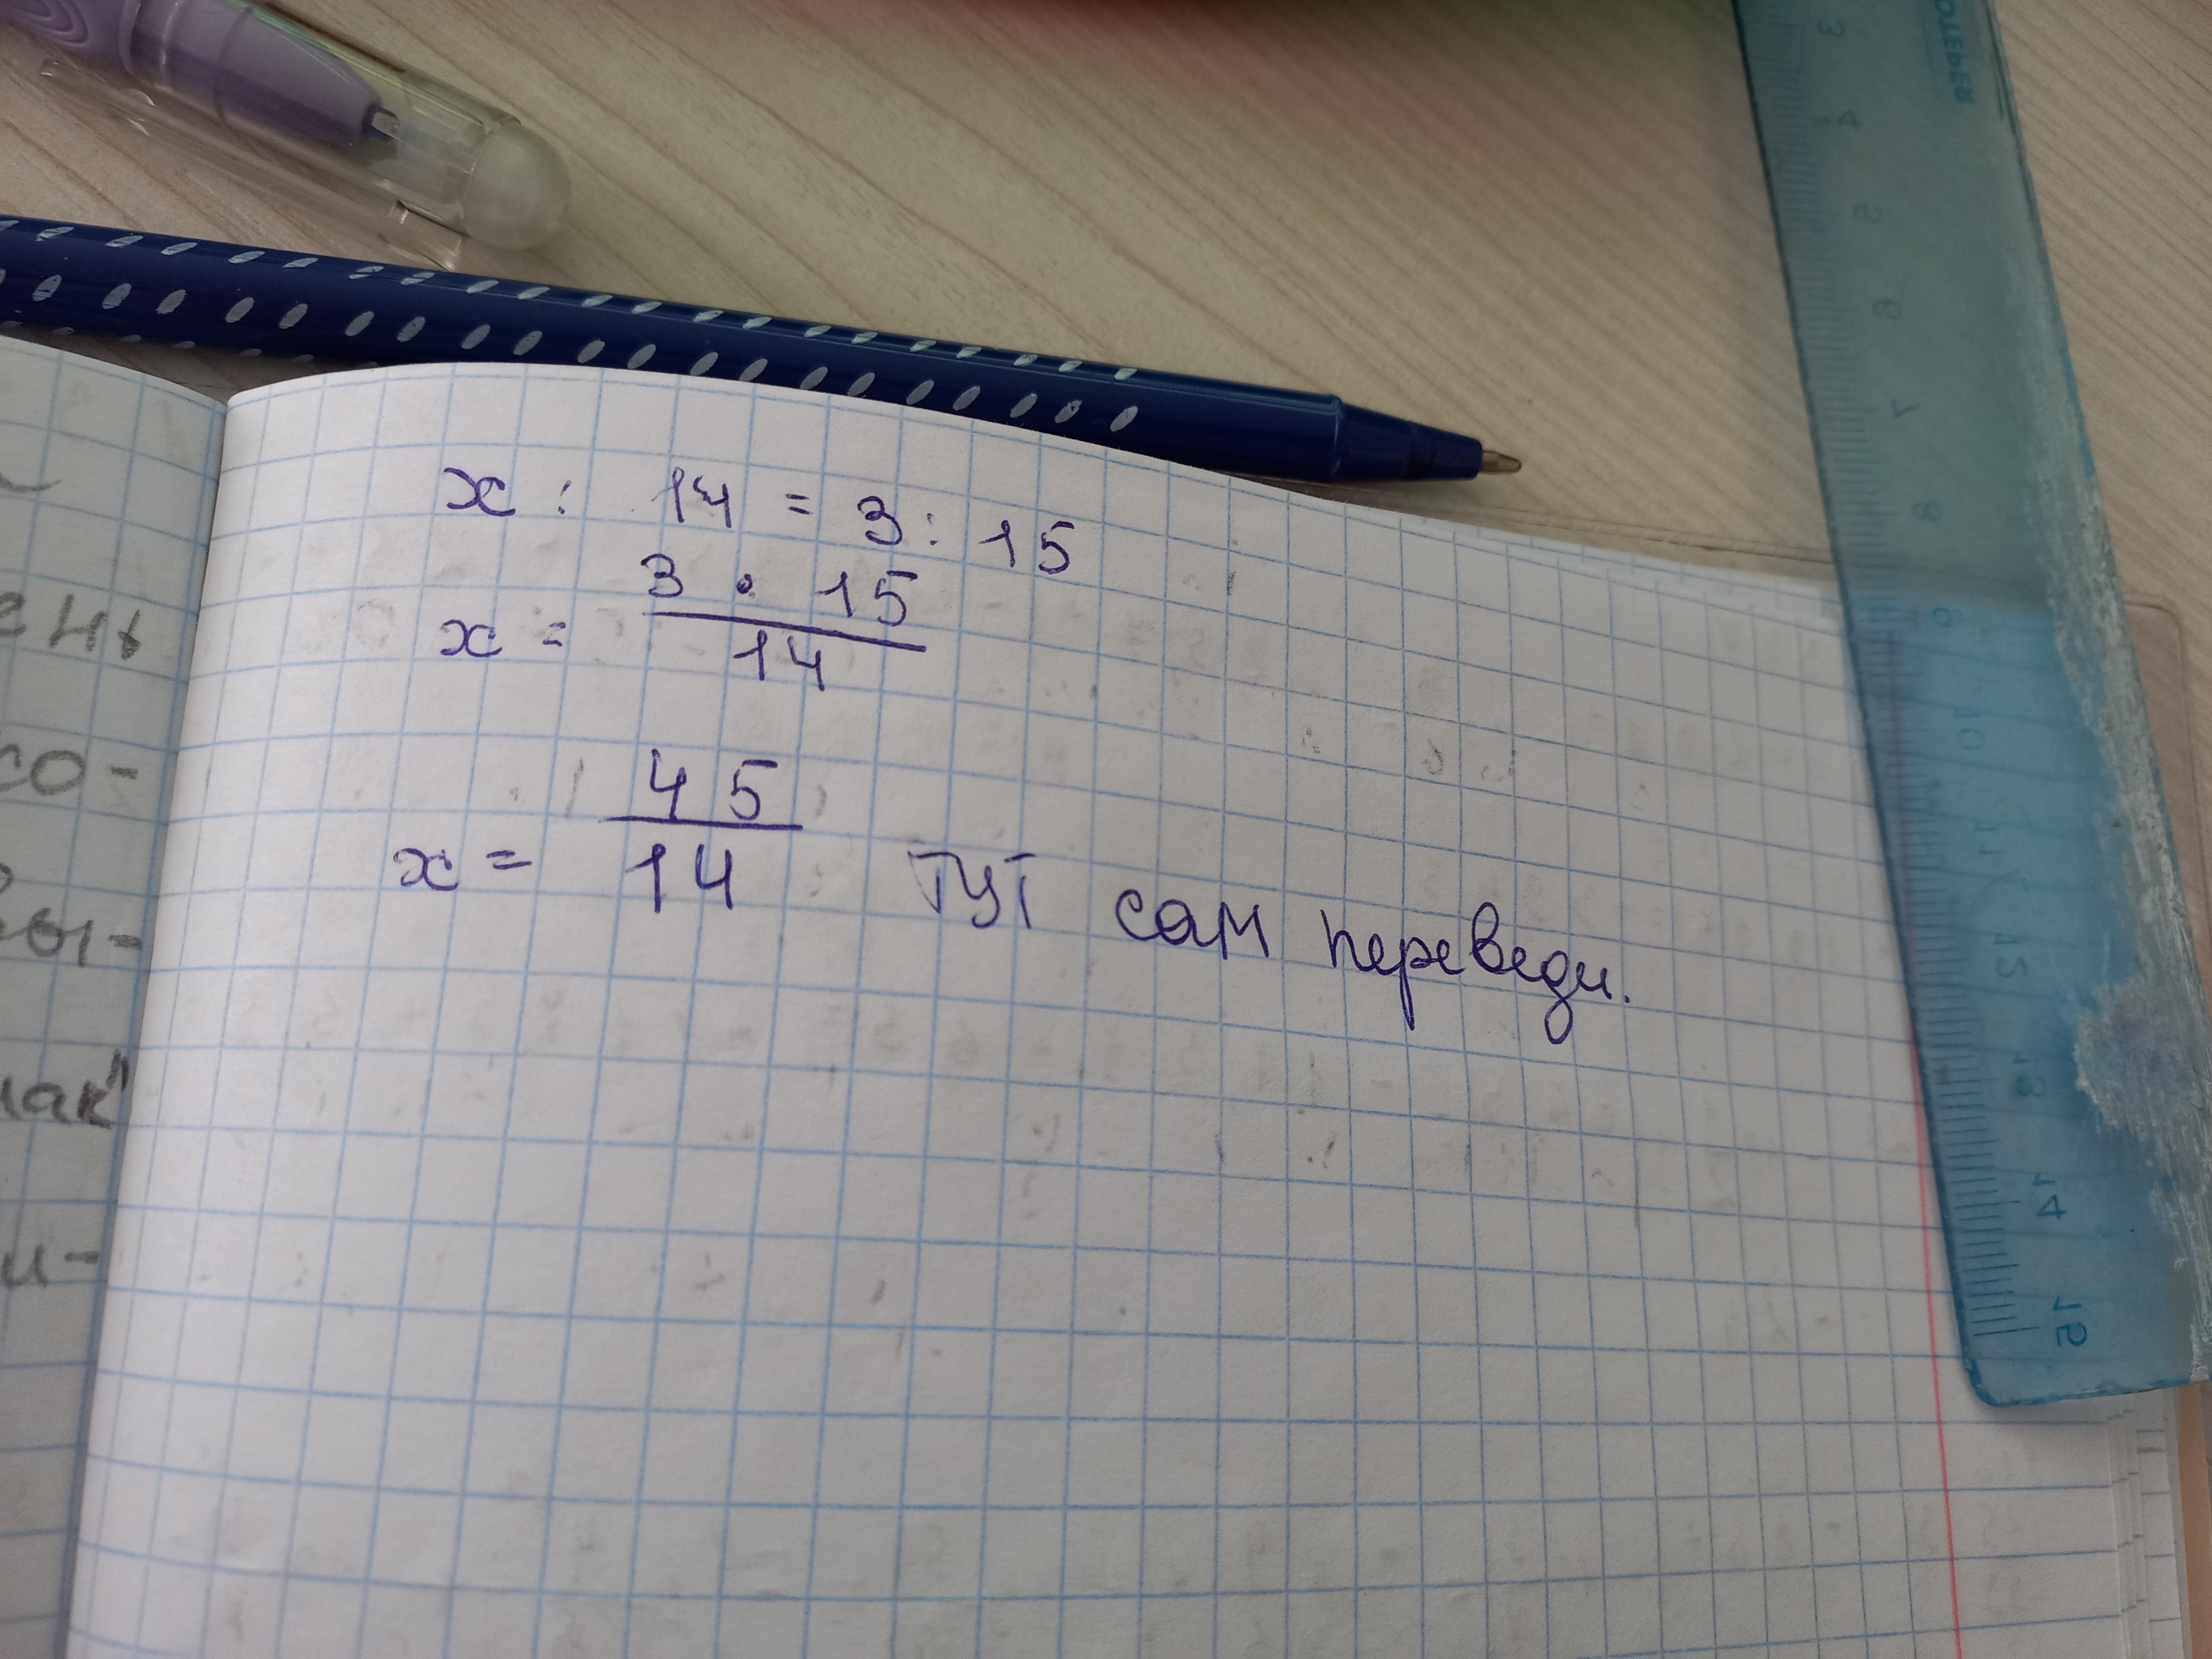 x : 14 = 3 : 15
x = 3 · 15 / 14
x = 45 / 14 тут сам переведи.
ен
со-
вы-
лак"
и-
3
4
5
6
7
8
9
10
11
12
13
14
15